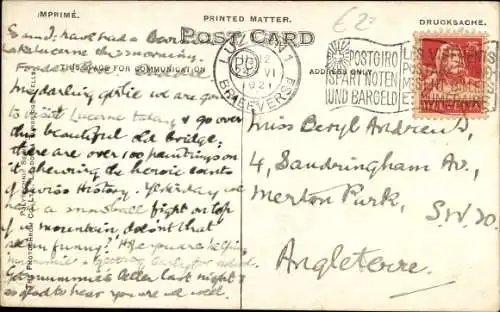 IMPRIMÉ.
PRINTED MATTER.
DRUCKSACHE.
POST CARD
THIS SPACE FOR COMMUNICATION
ADDRESS ONLY
LUZERN 1
VI
1921
BRIEFVERS
POSTGIRO
SPART NOTEN
UND BARGELD
HELVETIA
£2
and I have had a
Lake Lucerne this morning.
My darling girlie we are going
to visit Lucerne today & go over
the beautiful old bridge;
there are over 100 paintings on
it shewing the heroic events
of Swiss History. Yesterday we
had a snowball fight on top
of a mountain, doesn't that
seem funny? Hope you are helping
mummie
Got mummie's letter last night &
so glad to hear you are well.
Miss Beryl Andrews,
4, Sandringham Av.,
Merton Park,
S.W. 20.
Angleterre.